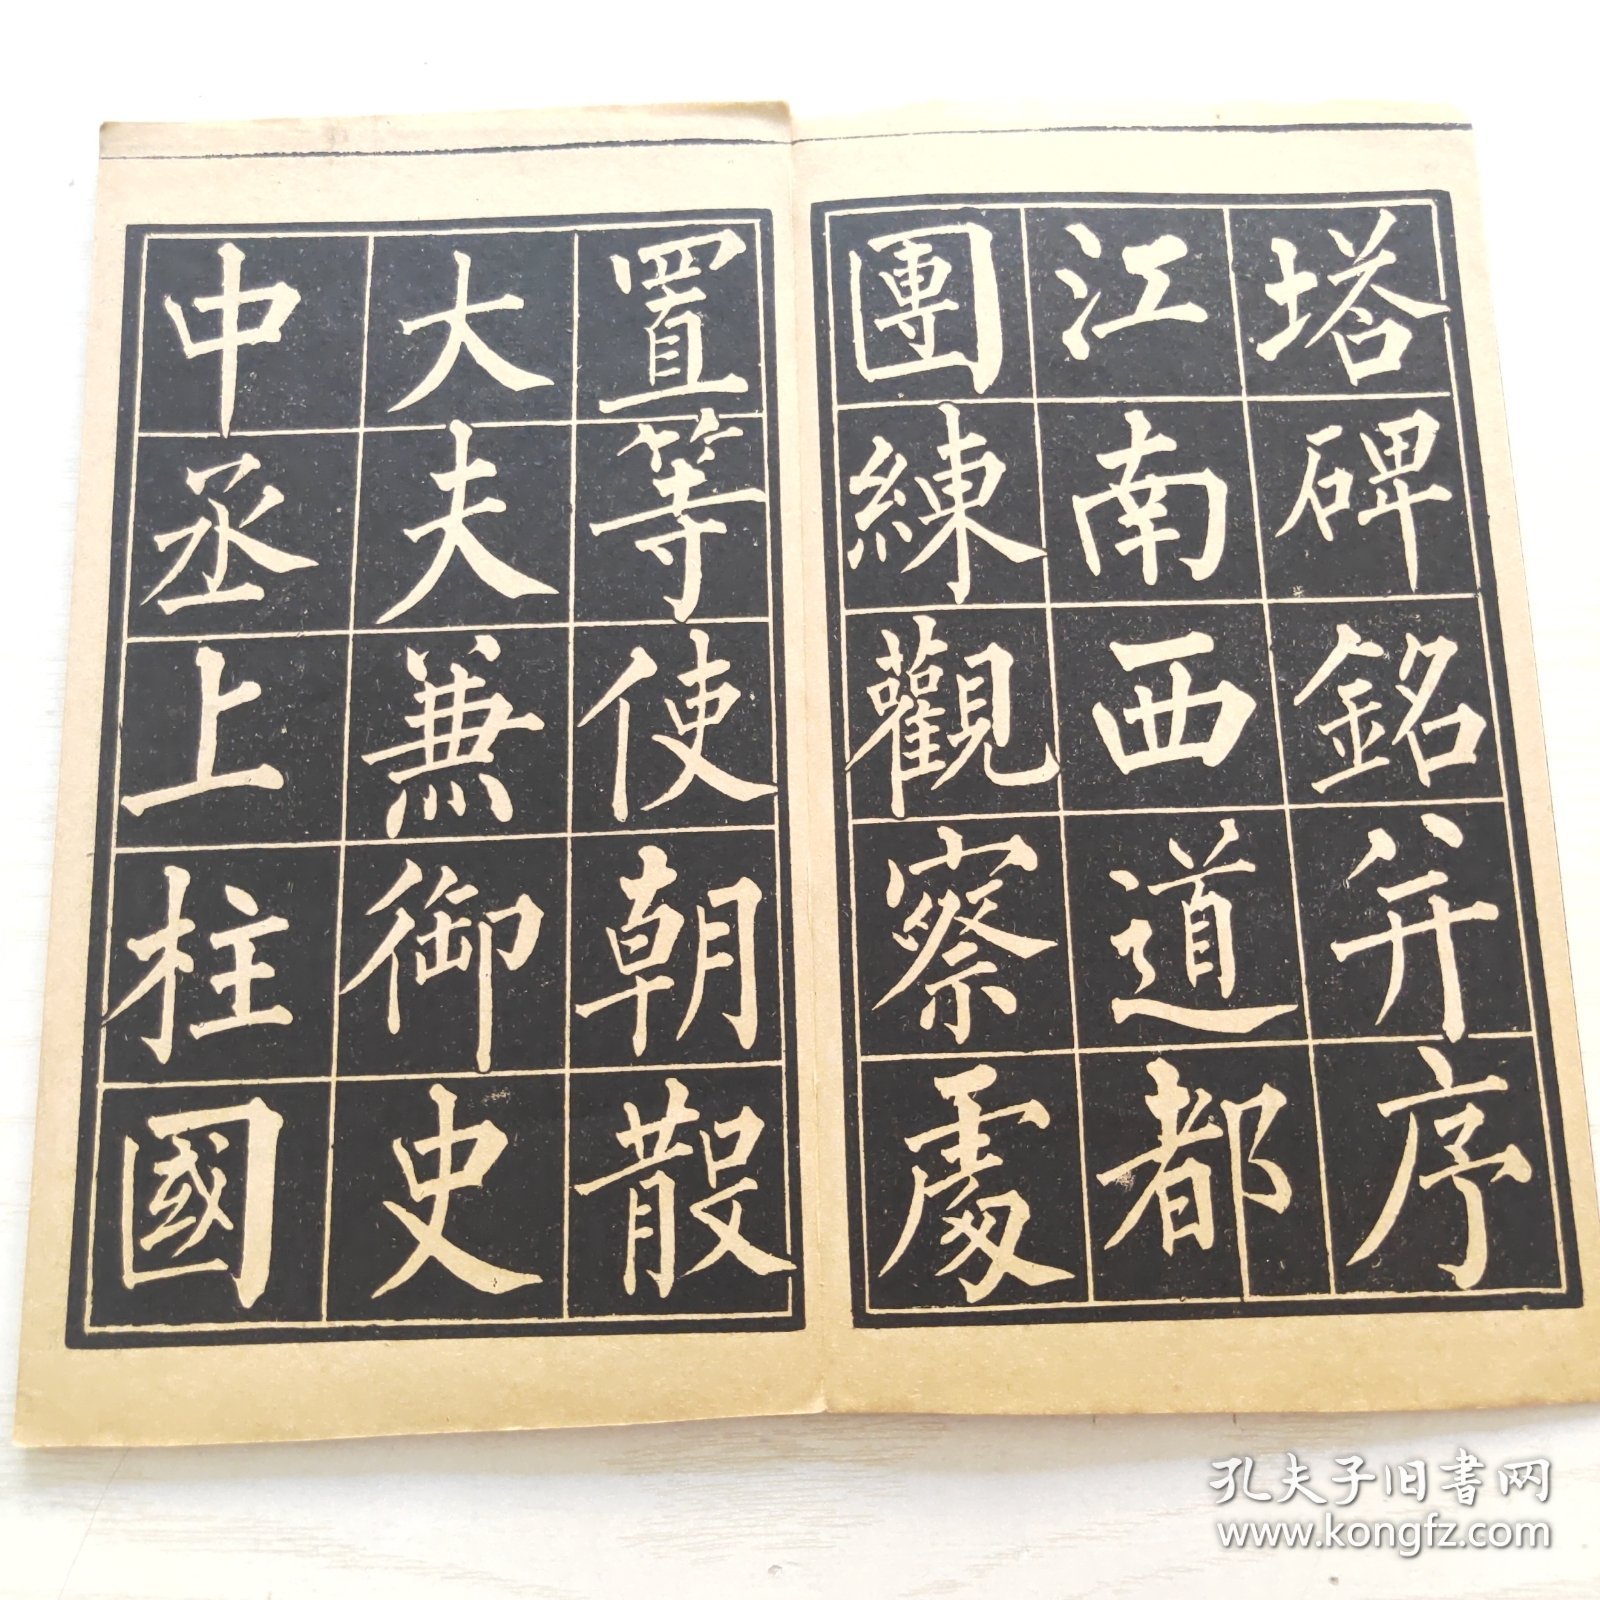 塔碑銘并序
江南西道都
團練觀察處
置等使朝散
大夫兼御史
中丞上柱國
孔夫子旧书网
www.kongfz.com